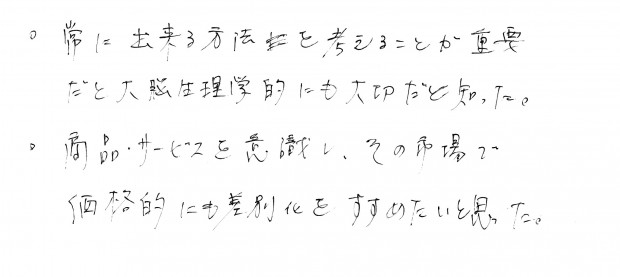 。常に出来る方法を考えることが重要
だと大脳生理学的にも大切だと知った。
。商品・サービスを意識し、その市場で
価格的にも差別化をすすめたいと思った。